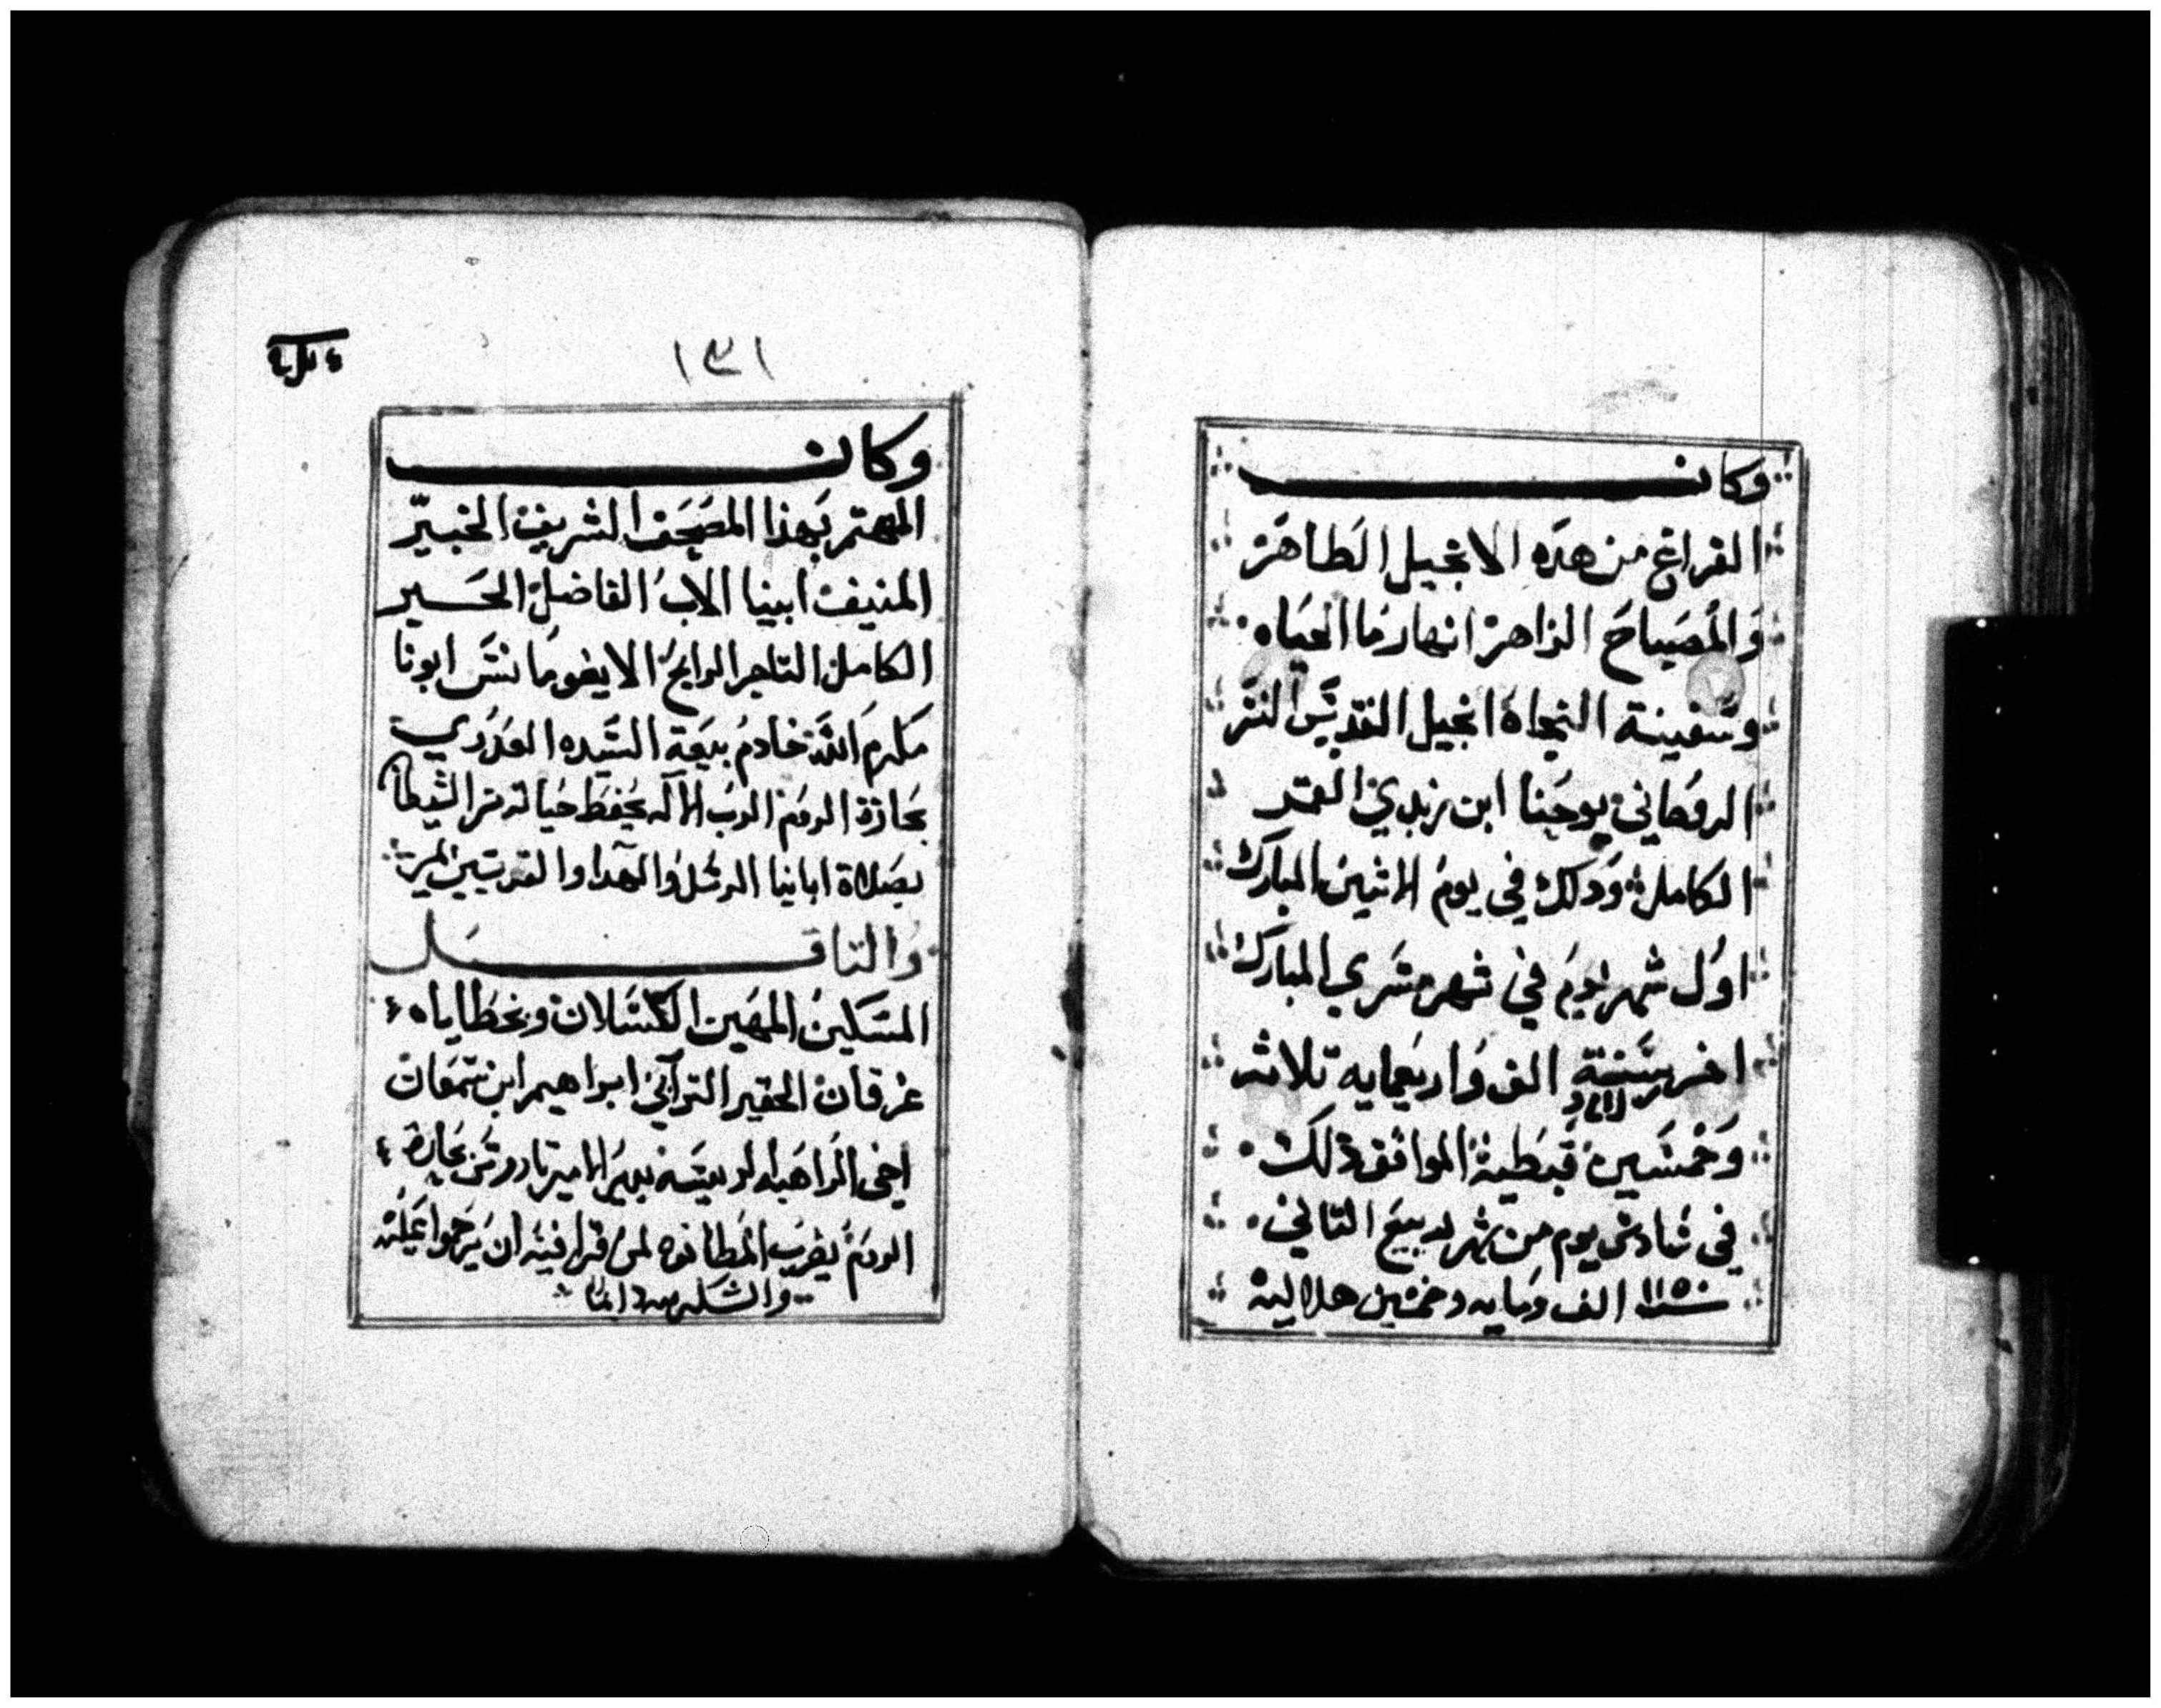 وكان
الفراغ من هده الانجيل الطاهر
والمصباح الزاهر انهار ما الحياه
وسفينة النجاه انجيل القديس
الروحاني يوحنا ابن زبدي
الكامله ودلك في يوم الاثنين المبارك
اول شهر يوم في شهر مسري المبارك
اخر سنة الف واربعمايه تلاثه
وخمسين قبطية الموافق دلك
في سادس يوم من شهر ربيع التاني
سنة ١١٥٠ الف ومايه وخمسين هلاليه
١٣١
وكان
المهتم بهذا المصحف الشريف الخبير
المنيف ابينا الاب الفاضل الحبر
الكامل التاجر الرابح الايغومانس ابونا
مكرم الله خادم بيعة السيده العدري
بحارة الروم الرب الاله يحفظ حياته من الشيطان
بصلاة اباينا الرسل والشهدا والقديسين امين
والناقل
المسكين المهين الكسلان وبخطاياه
غرقان الحقير الترابي ابراهيم ابن سمعان
اخي الراهبه الريسه بدير الامير تادروس بحارة
الروم يضرب المطانوه لمن قرا فيه ان يترحموا عليه
والشكر لله دايما